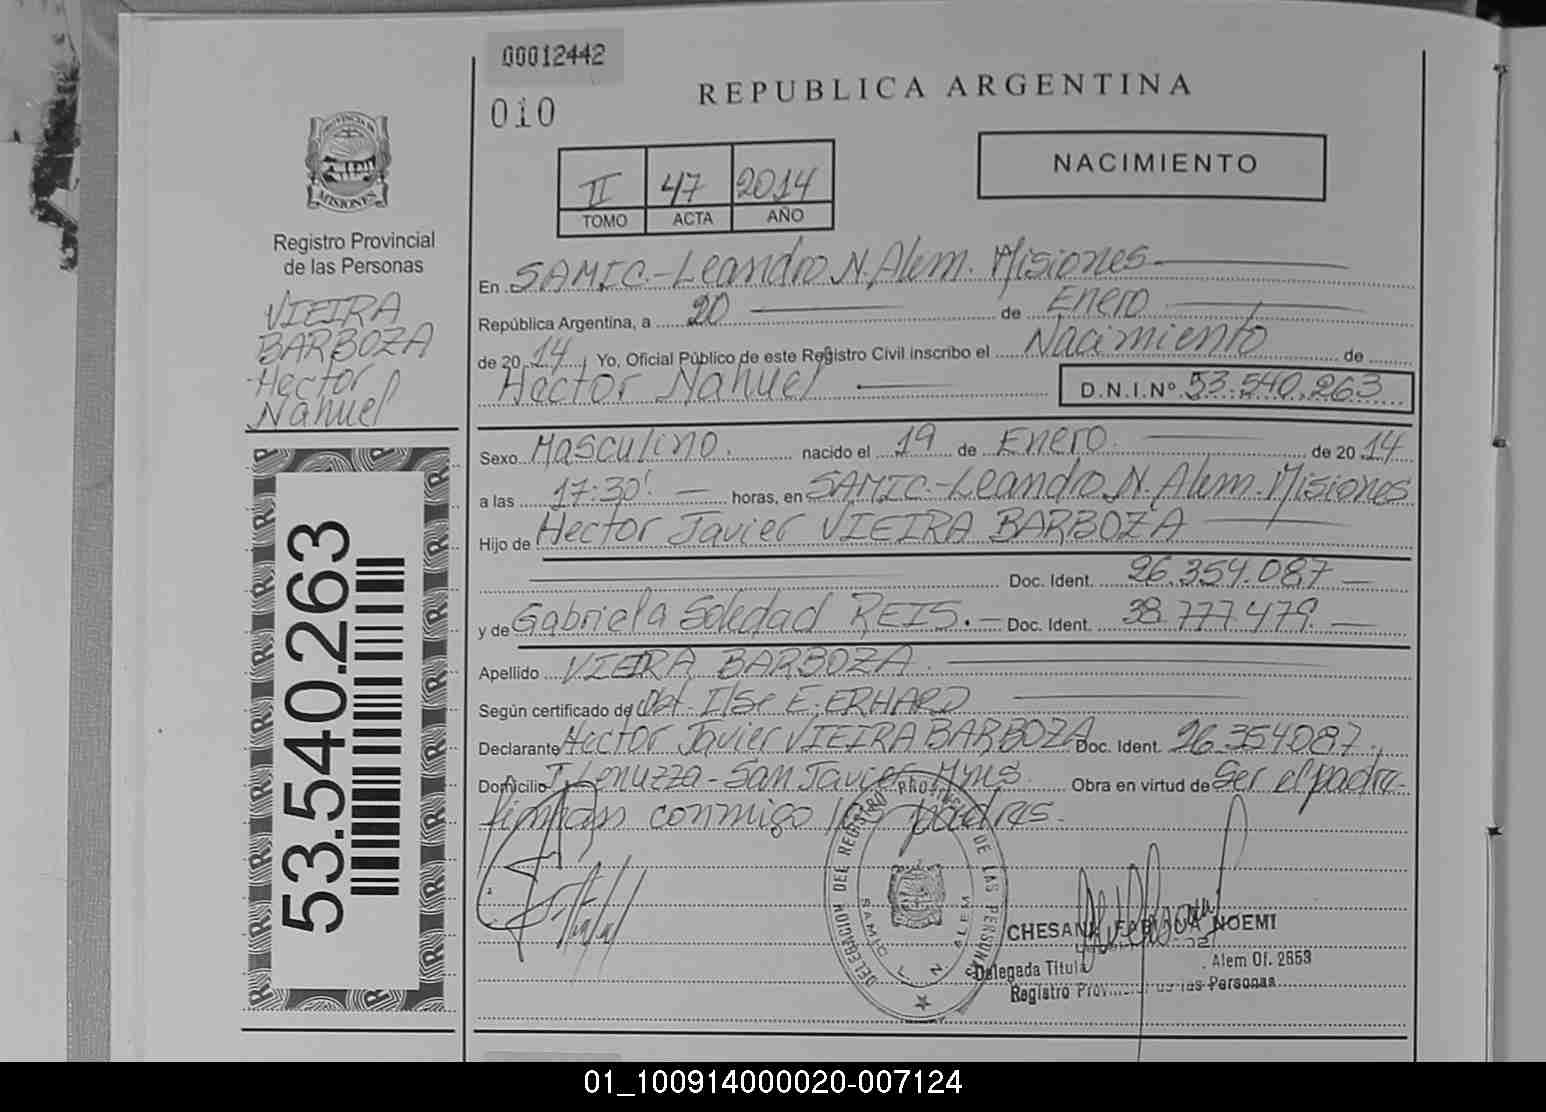 00012442
010
REPUBLICA ARGENTINA
NACIMIENTO
II 47 2014
TOMO ACTA AÑO
PROVINCIA DE
MISIONES
Registro Provincial
de las Personas
VIEIRA
BARBOZA
Hector
Nahuel
53.540.263
En SAMIC.-Leandro N. Alem. Misiones
República Argentina, a 20 de Enero
de 20 14 Yo, Oficial Público de este Registro Civil inscribo el Nacimiento de
Hector Nahuel D.N.I.Nº 53.540.263
Sexo Masculino. nacido el 19 de Enero. de 20 14
a las 17:30' horas, en SAMIC.-Leandro N. Alem. Misiones
Hijo de Hector Javier VIEIRA BARBOZA
Doc. Ident. 26.354.087
y de Gabriela Soledad REIS.- Doc. Ident. 38.777.479
Apellido VIEIRA BARBOZA.
Según certificado de Obst. Ilse E. ERHARD
Declarante Hector Javier VIEIRA BARBOZA Doc. Ident. 26.354087.,
Domicilio San Javier Mnes. Obra en virtud de Ser el padre.-
firman conmigo los padres.
DELEGACION DEL REGISTRO PROVINCIAL DE LAS PERSONAS
SAMIC L. N. ALEM
CHESANI NOEMI
Delegada Titular Alem Of. 2653
Registro Provincial de las Personas
01_100914000020-007124